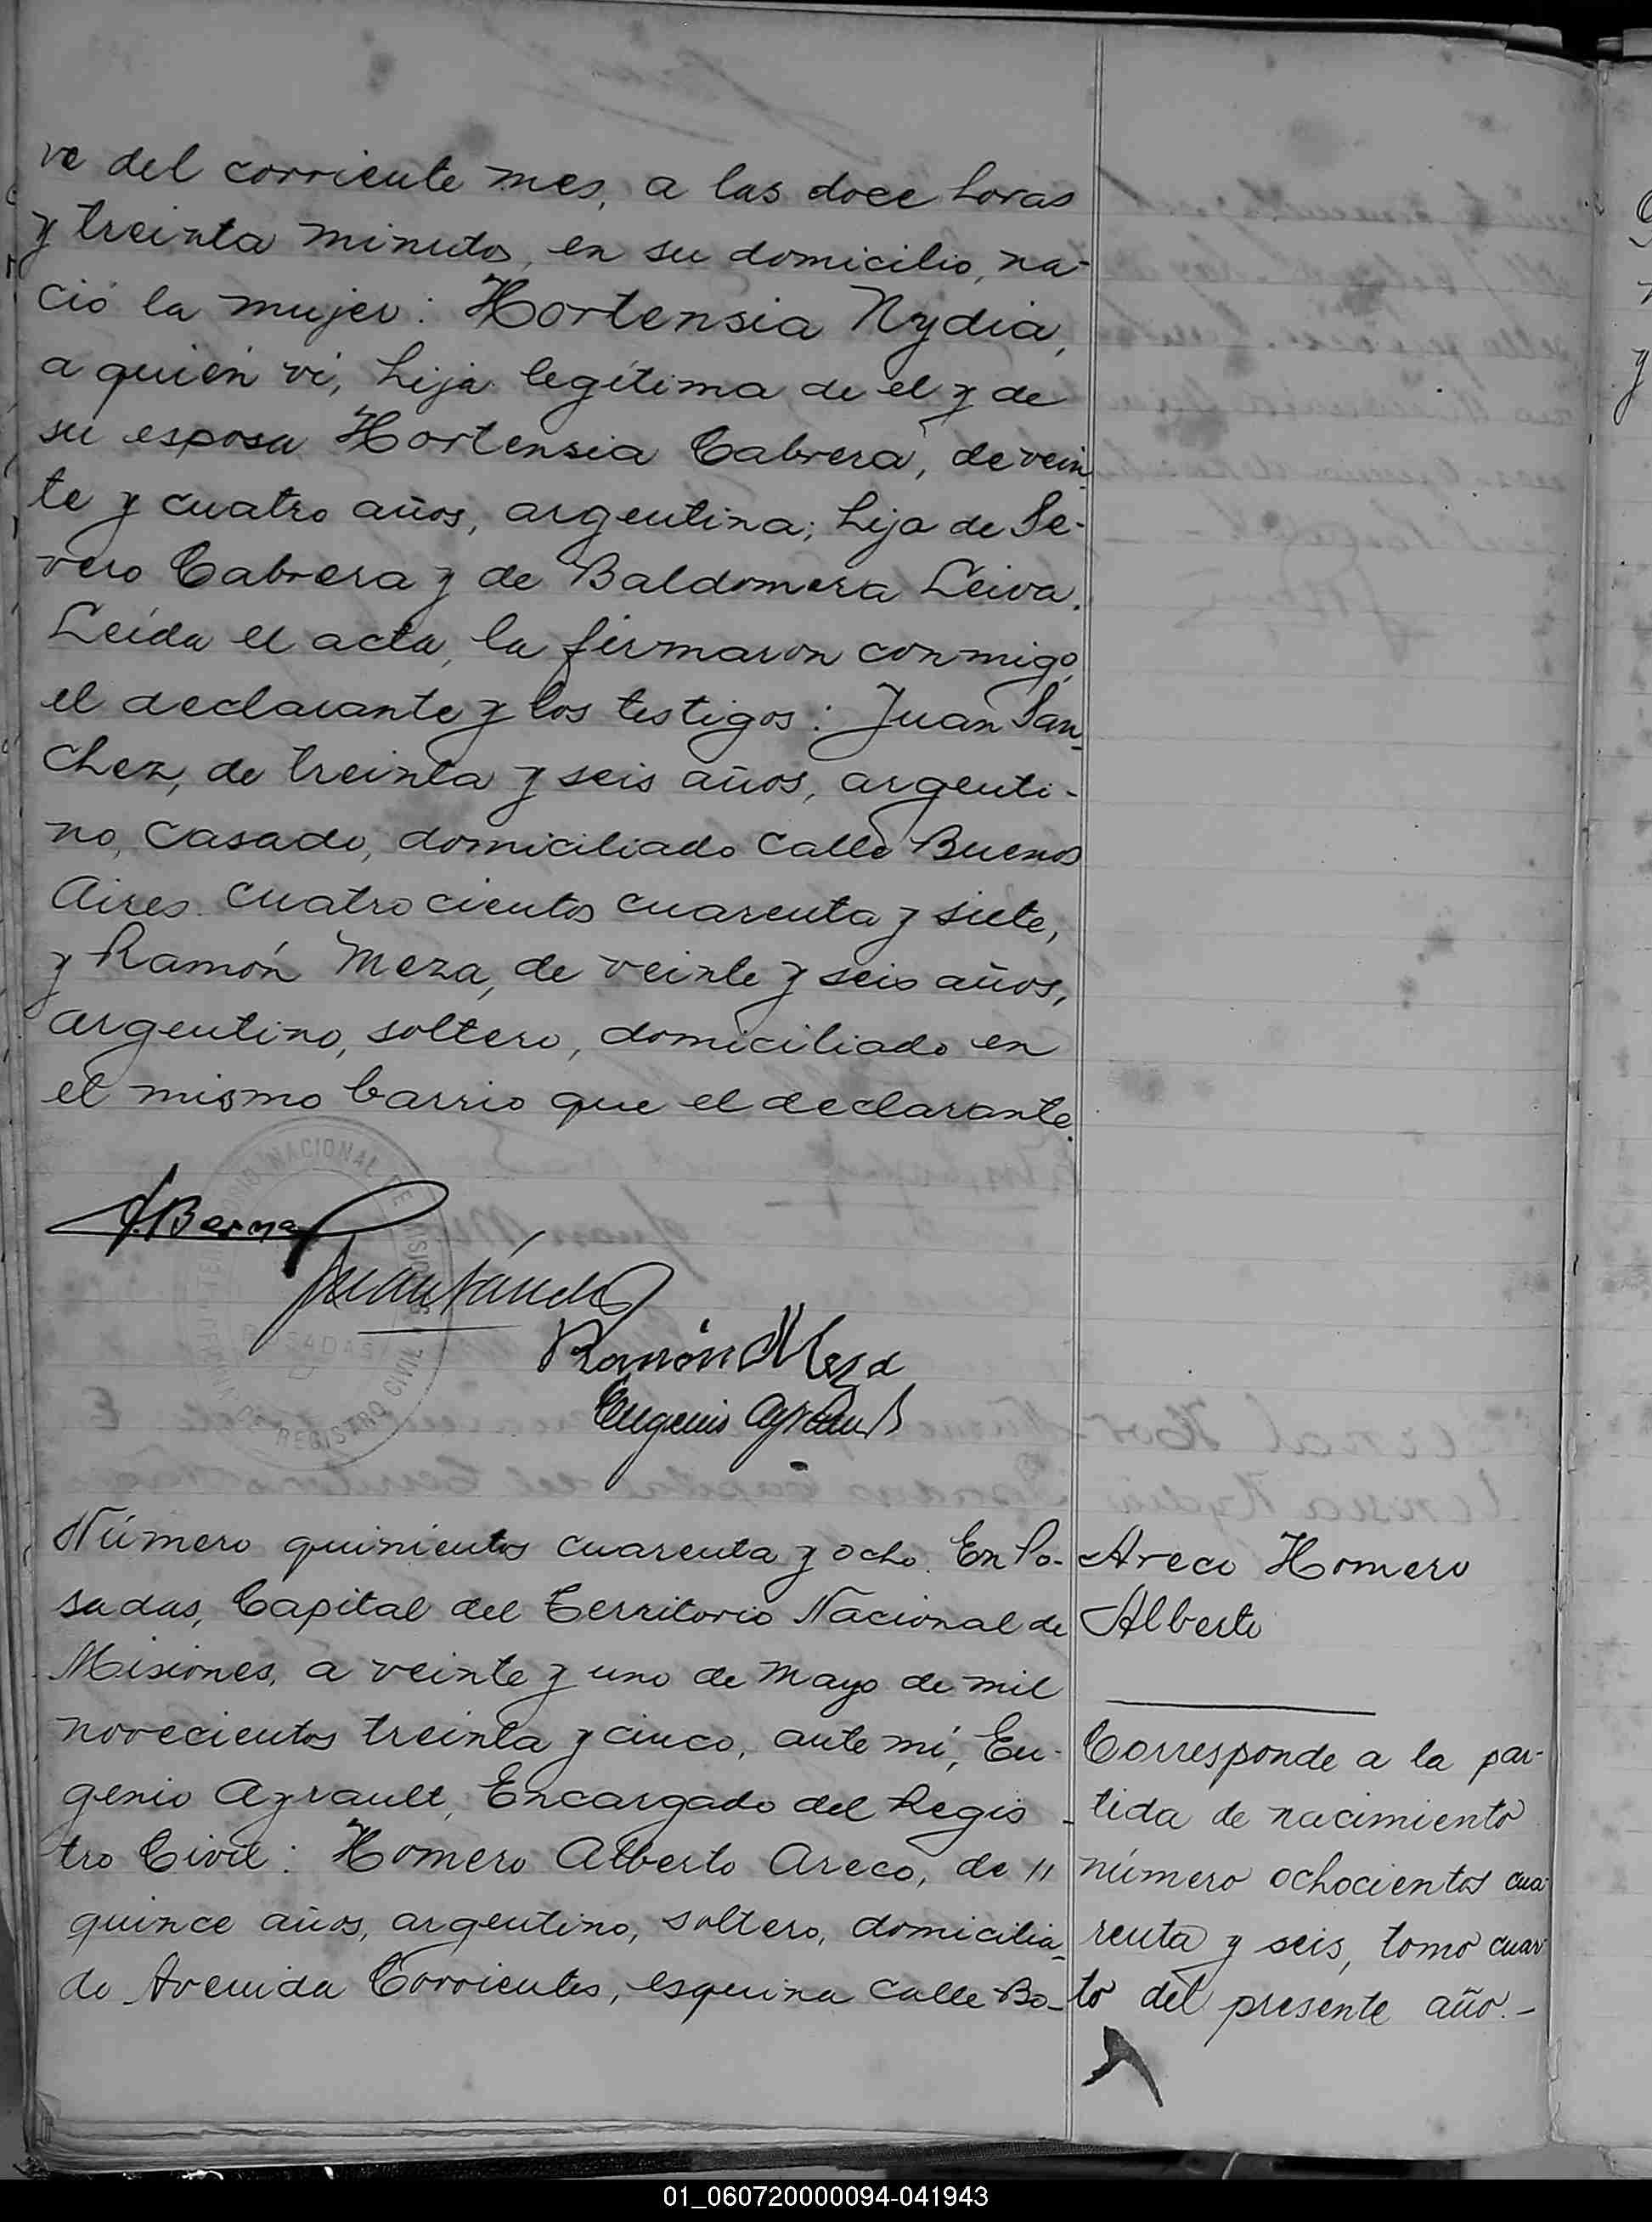 ve del corriente mes, a las doce horas
y treinta minutos, en su domicilio, na-
ció la mujer: Hortensia Nydia,
a quién vi, hija legítima de el y de
su esposa Hortensia Cabrera, de vein-
te y cuatro años, argentina; hija de Se-
vero Cabrera y de Baldomera Leiva.
Leída el acta, la firmaron conmigo,
el declarante y los testigos: Juan San-
chez, de treinta y seis años, argenti-
no, casado, domiciliado calle Buenos
Aires cuatrocientos cuarenta y siete,
y Ramón Meza, de veinte y seis años,
argentino, soltero, domiciliado en
el mismo barrio que el declarante.
TERRITORIO NACIONAL DE MISIONES
POSADAS
REGISTRO CIVIL
Bernal
Juan Sánchez
Ramón Meza
Eugenio Ayrault
Número quinientos cuarenta y ocho. En Po-
sadas, Capital del Territorio Nacional de
Misiones, a veinte y uno de Mayo de mil
novecientos treinta y cinco, ante mí, Eu-
genio Ayrault, Encargado del Regis-
tro Civil: Homero Alberto Areco, de //
quince años, argentino, soltero, domicilia-
do Avenida Corrientes, esquina calle Bo-
Areco Homero
Alberto
Corresponde a la par-
tida de nacimiento
número ochocientos cua
renta y seis, tomo cuar
to del presente año.-
01_060720000094-041943